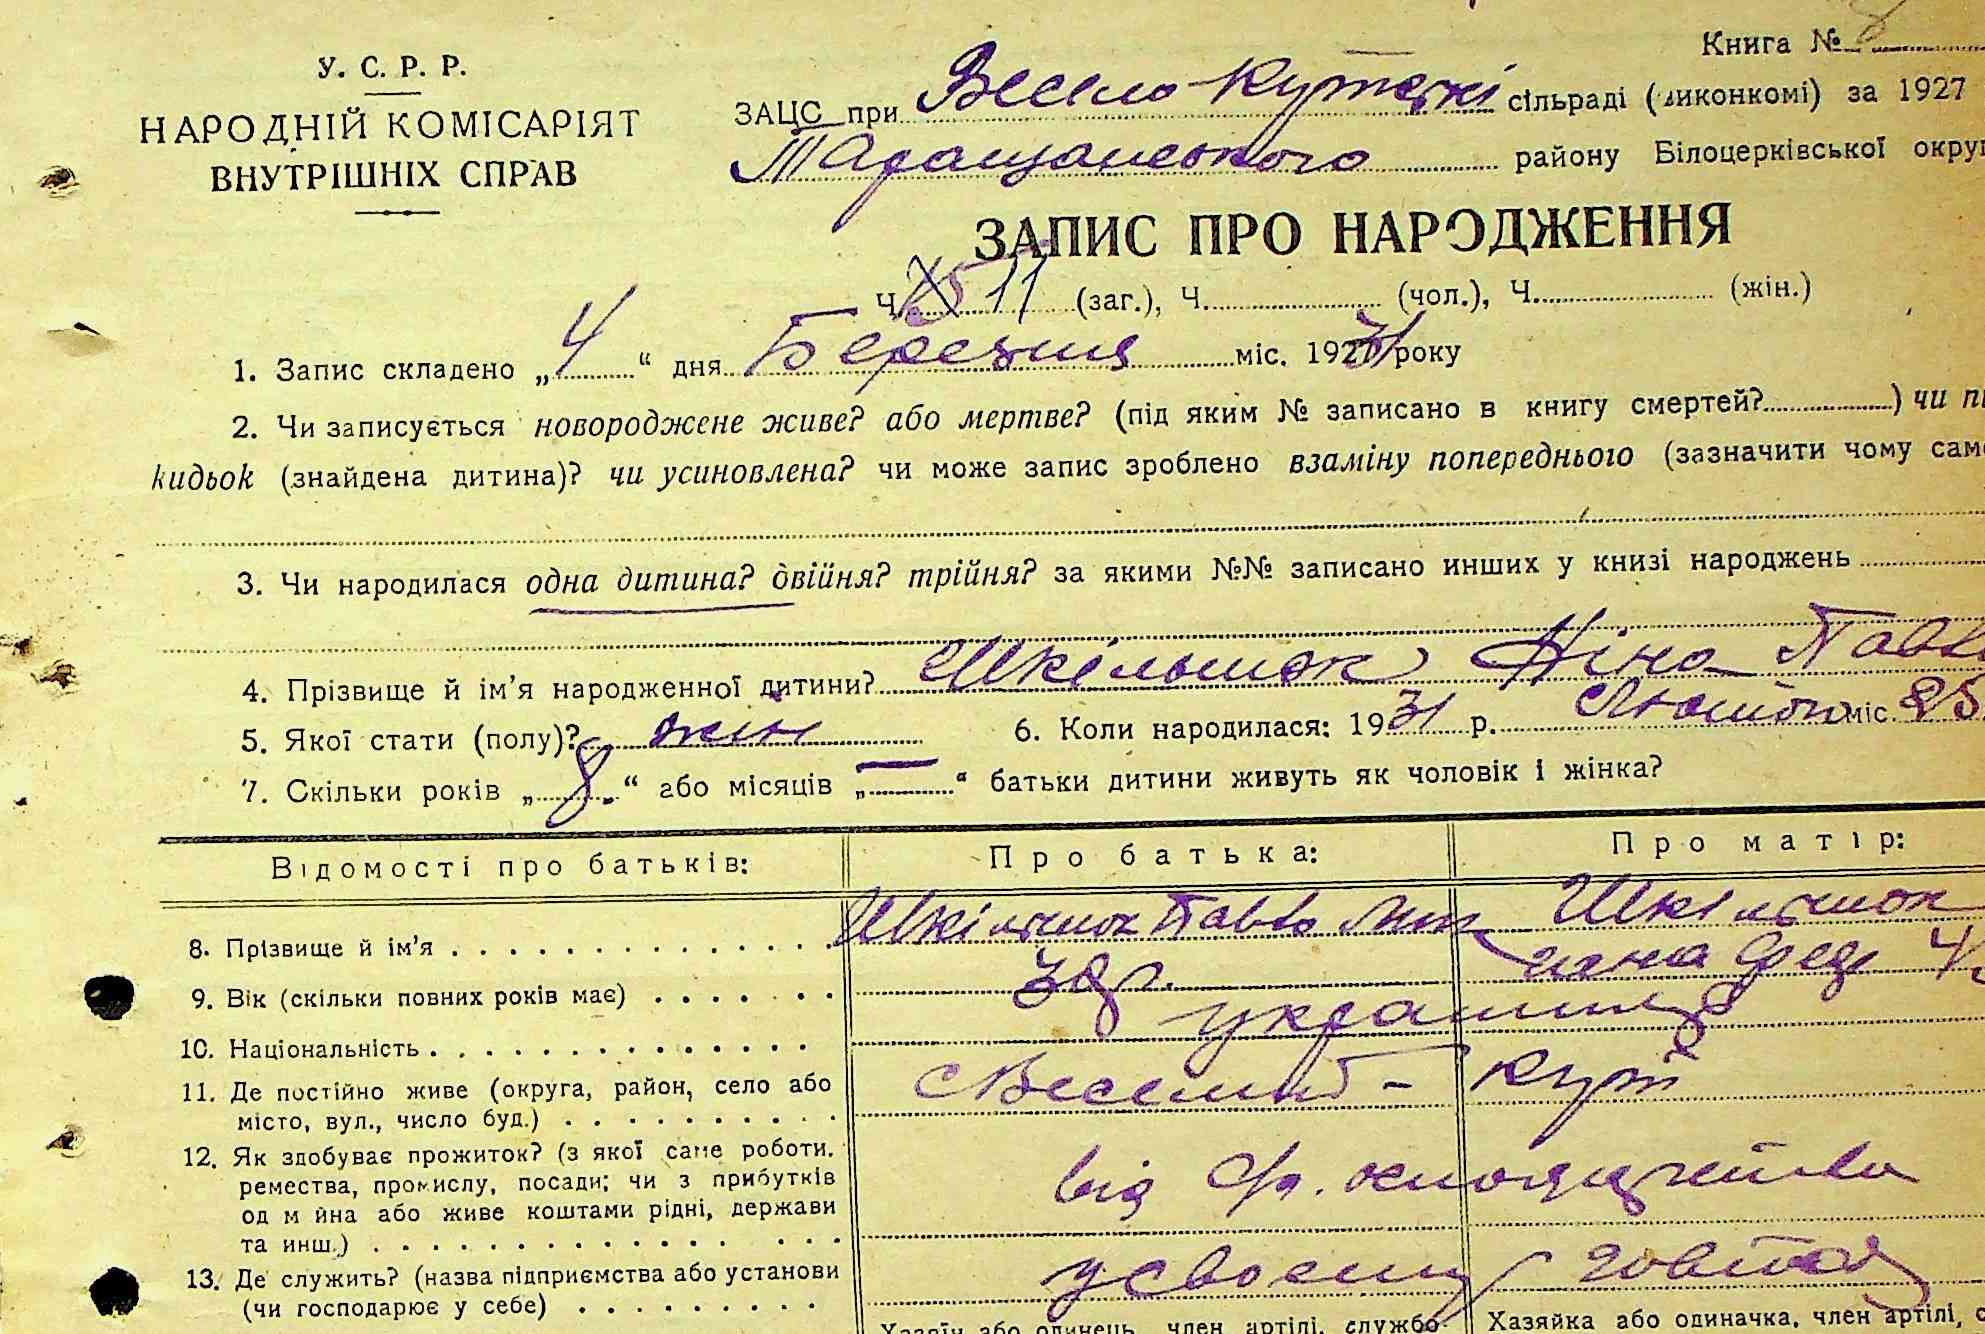 Книга № 8
У. С. Р. Р.
НАРОДНІЙ КОМІСАРІЯТ
ВНУТРІШНІХ СПРАВ
ЗАЦС при Весело-Кутській сільраді (виконкомі) за 1927
Таращанського району Білоцерківської округ
ЗАПИС ПРО НАРОДЖЕННЯ
Ч. 11 (заг.), Ч. (чол.), Ч. (жін.)
1. Запис складено „4“ дня Березня міс. 1931 року
2. Чи записується новороджене живе? або мертве? (під яким № записано в книгу смертей?) чи пі
кидьок (знайдена дитина)? чи усиновлена? чи може запис зроблено взаміну попереднього (зазначити чому сам
3. Чи народилася одна дитина? двійня? трійня? за якими №№ записано инших у книзі народжень
4. Прізвище й ім'я народженної дитини? Шкільнюк Ніна Павл
5. Якої стати (полу)? жін 6. Коли народилася: 1931 р. Лютого міс. 25
7. Скільки років „8“ або місяців „—“ батьки дитини живуть як чоловік і жінка?
Відомості про батьків: Про батька: Про матір:
8. Прізвище й ім'я Шкільнюк Павло Шкільнюк
9. Вік (скільки повних років має)
10. Національність українці
11. Де постійно живе (округа, район, село або
місто, вул., число буд.) Веселий-Кут
12. Як здобуває прожиток? (з якої саме роботи.
ремества, промислу, посади; чи з прибутків
од м йна або живе коштами рідні, держави
та инш.) від
13. Де служить? (назва підприємства або установи
(чи господарює у себе) у своєму
Хазяїн або одинець, член артілі, службо- Хазяйка або одиначка, член артілі, с